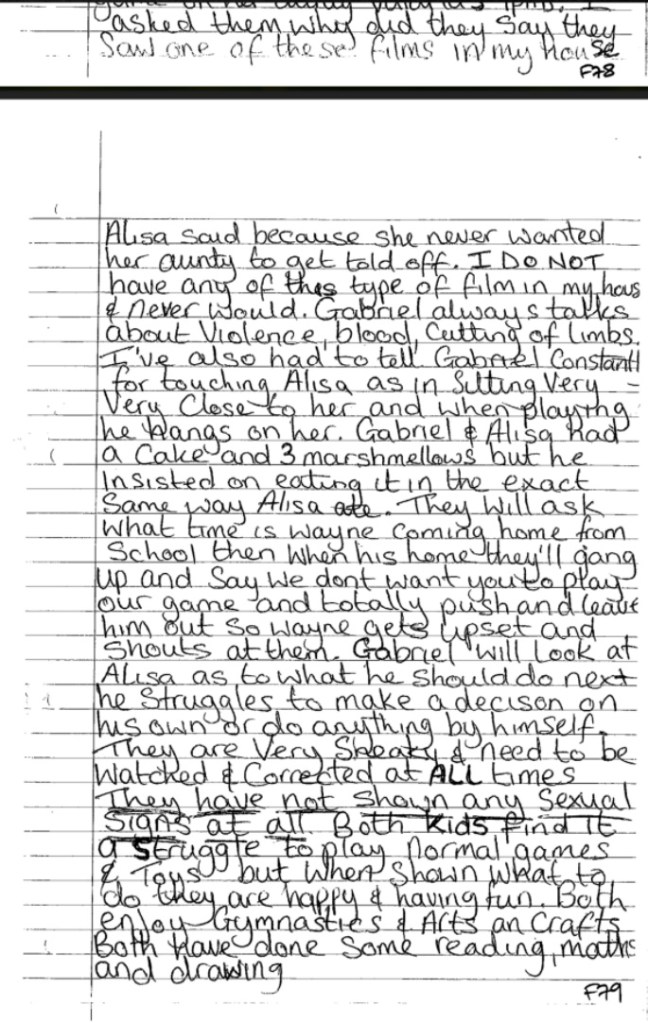 asked them why did they say they
Saw one of these films in my house
F78
Alisa said because she never wanted
her aunty to get told off. I DO NOT
have any of this type of film in my hous
& never would. Gabriel always talks
about Violence, blood, Cutting of limbs.
I've also had to tell Gabriel Constantl
for touching Alisa as in Sitting Very -
Very Close to her and when playing
he hangs on her. Gabriel & Alisa had
a Cake and 3 marshmellows but he
insisted on eating it in the exact
Same way Alisa ate. They will ask
what time is wayne coming home from
School then when his home they'll gang
up and Say we dont want you to play
our game and totally push and leave
him out So wayne gets upset and
Shouts at them. Gabriel will look at
Alisa as to what he should do next
he struggles to make a decison on
his own or do anything by himself.
They are Very Sneaky & need to be
watched & Corrected at ALL times
They have not shown any Sexual
Signs at all. Both kids find it
a struggle to play normal games
& Toys but when shown what to
do they are happy & having fun. Both
enjoy Gymnastics & Arts an Crafts
Both have done some reading, maths
and drawing
F79